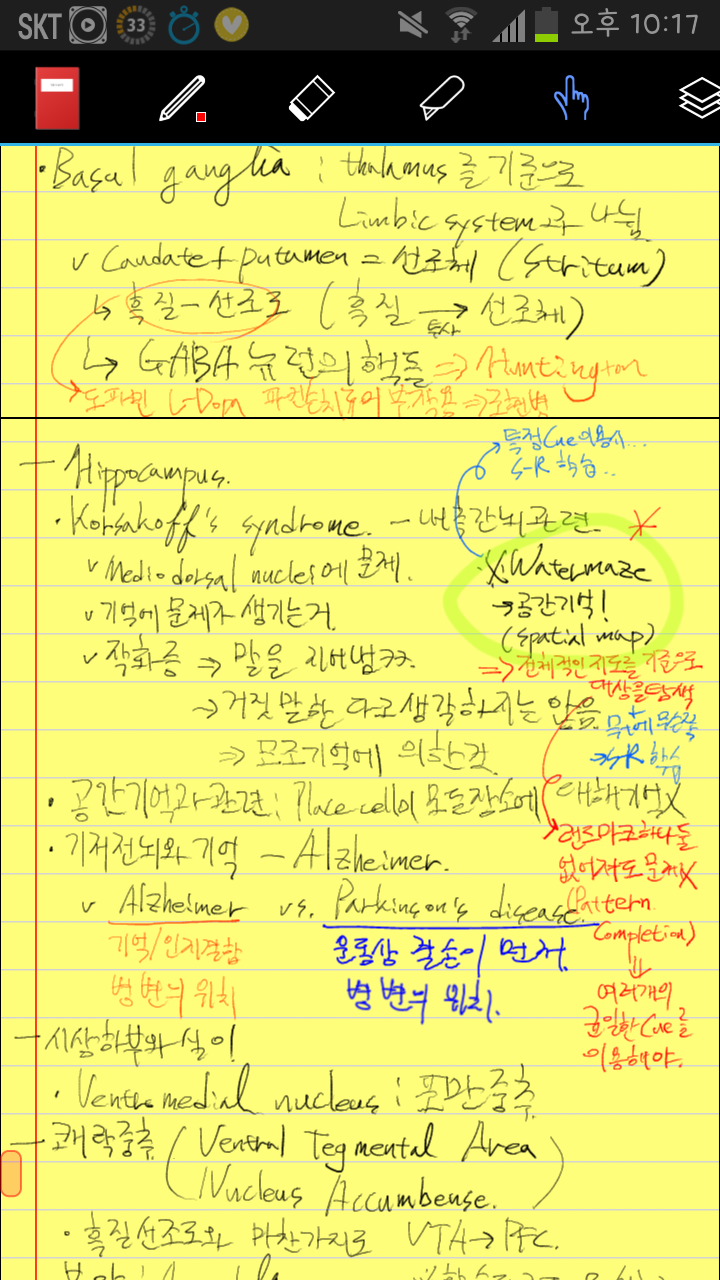 SKT 33 오후 10:17
· Basal ganglia : thalamus를 기준으로
Limbic system과 나뉨
v Caudate + putamen = 선조체 (Stritum)
↳ 흑질-선조로 (흑질 → 선조체)
투사
↳ GABA 뉴런의 핵들 ⇒ Huntington
도파민 L-Dopa 파킨슨치료의 부작용 ⇒ 조현병
특정 Cue 이용시...
S-R 학습..
- Hippocampus.
· Korsakoff's syndrome. - 내측간뇌 관련.
v Mediodorsal nuclei에 문제.
v 기억에 문제가 생기는거.
v 작화증 ⇒ 말을 지어냄 ㅋㅋ
⇒ 거짓말한다고 생각하지는 않음
⇒ 모조기억에 의한것
※ Watermaze
→ 공간기억!
(spatial map)
⇒ 전체적인 지도를 기준으로
대상을 탐색
· 공간기억과 관련 : Place cell이 모든장소에 대해 기억X
· 기저전뇌와 기억 - Alzheimer.
v Alzheimer vs. Parkinson's disease.
기억/인지결함
병변의 위치
운동상 결손이 먼저.
병변의 위치.
랜드마크 하나둘
없어져도 문제X
(Pattern
Completion)
⇓
여러개의
균일한 Cue를
이용해야.
- 시상하부와 섭이
· Ventromedial nucleus : 포만중추
- 쾌락중추 (Ventral Tegmental Area
Nucleus Accumbense.)
· 흑질선조로와 마찬가지로 VTA → PFC.